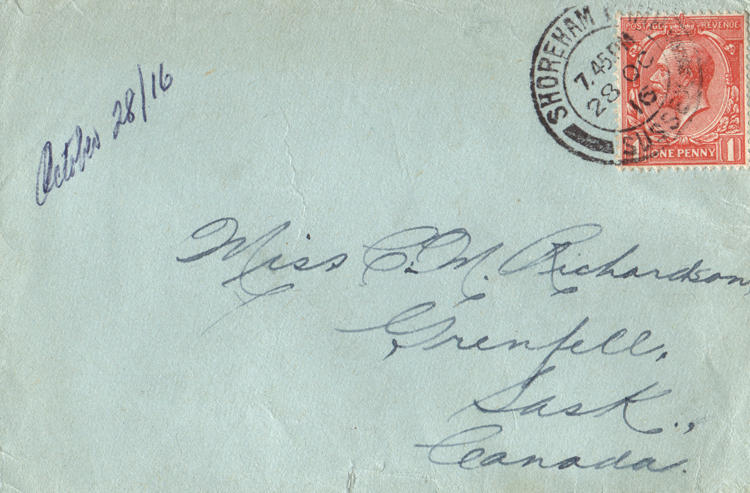 October 28/16
SHOREHAM
7.45 PM
28 OC
16
SUSSEX
POSTAGE REVENUE
1 ONE PENNY 1
Miss C. M. Richardson,
Grenfell,
Sask.,
Canada.